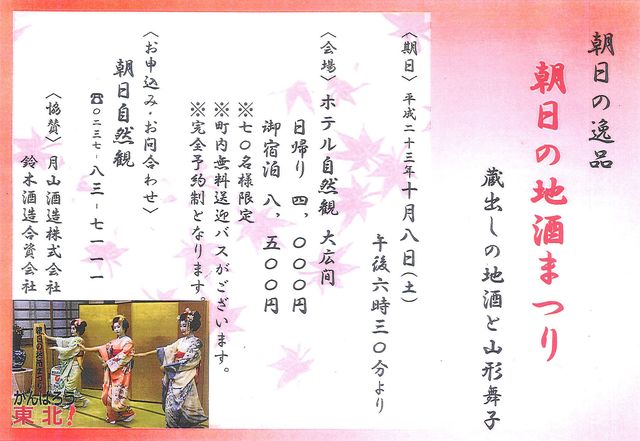 朝日の逸品
朝日の地酒まつり
蔵出しの地酒と山形舞子
〈期日〉平成二十三年十月八日(土)
午後六時三〇分より
〈会場〉ホテル自然観 大広間
日帰り 四、〇〇〇円
御宿泊 八、五〇〇円
※七〇名様限定
※町内無料送迎バスがございます。
※完全予約制となります。
〈お申込み・お問合わせ〉
朝日自然観
☎〇二三七-八三-七一一一
〈協賛〉月山酒造株式会社
鈴木酒造合資会社
朝日の地酒まつり
がんばろう
東北!